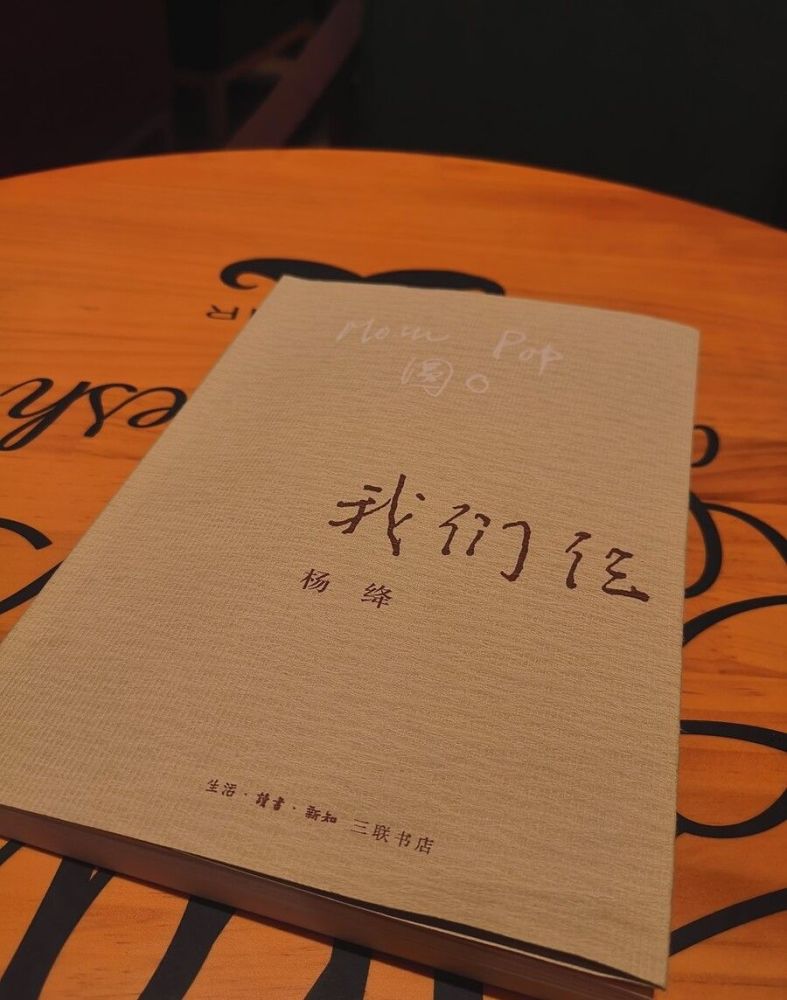 Mom Pop
圆○
我们仨
杨 绛
生活·讀書·新知 三联书店